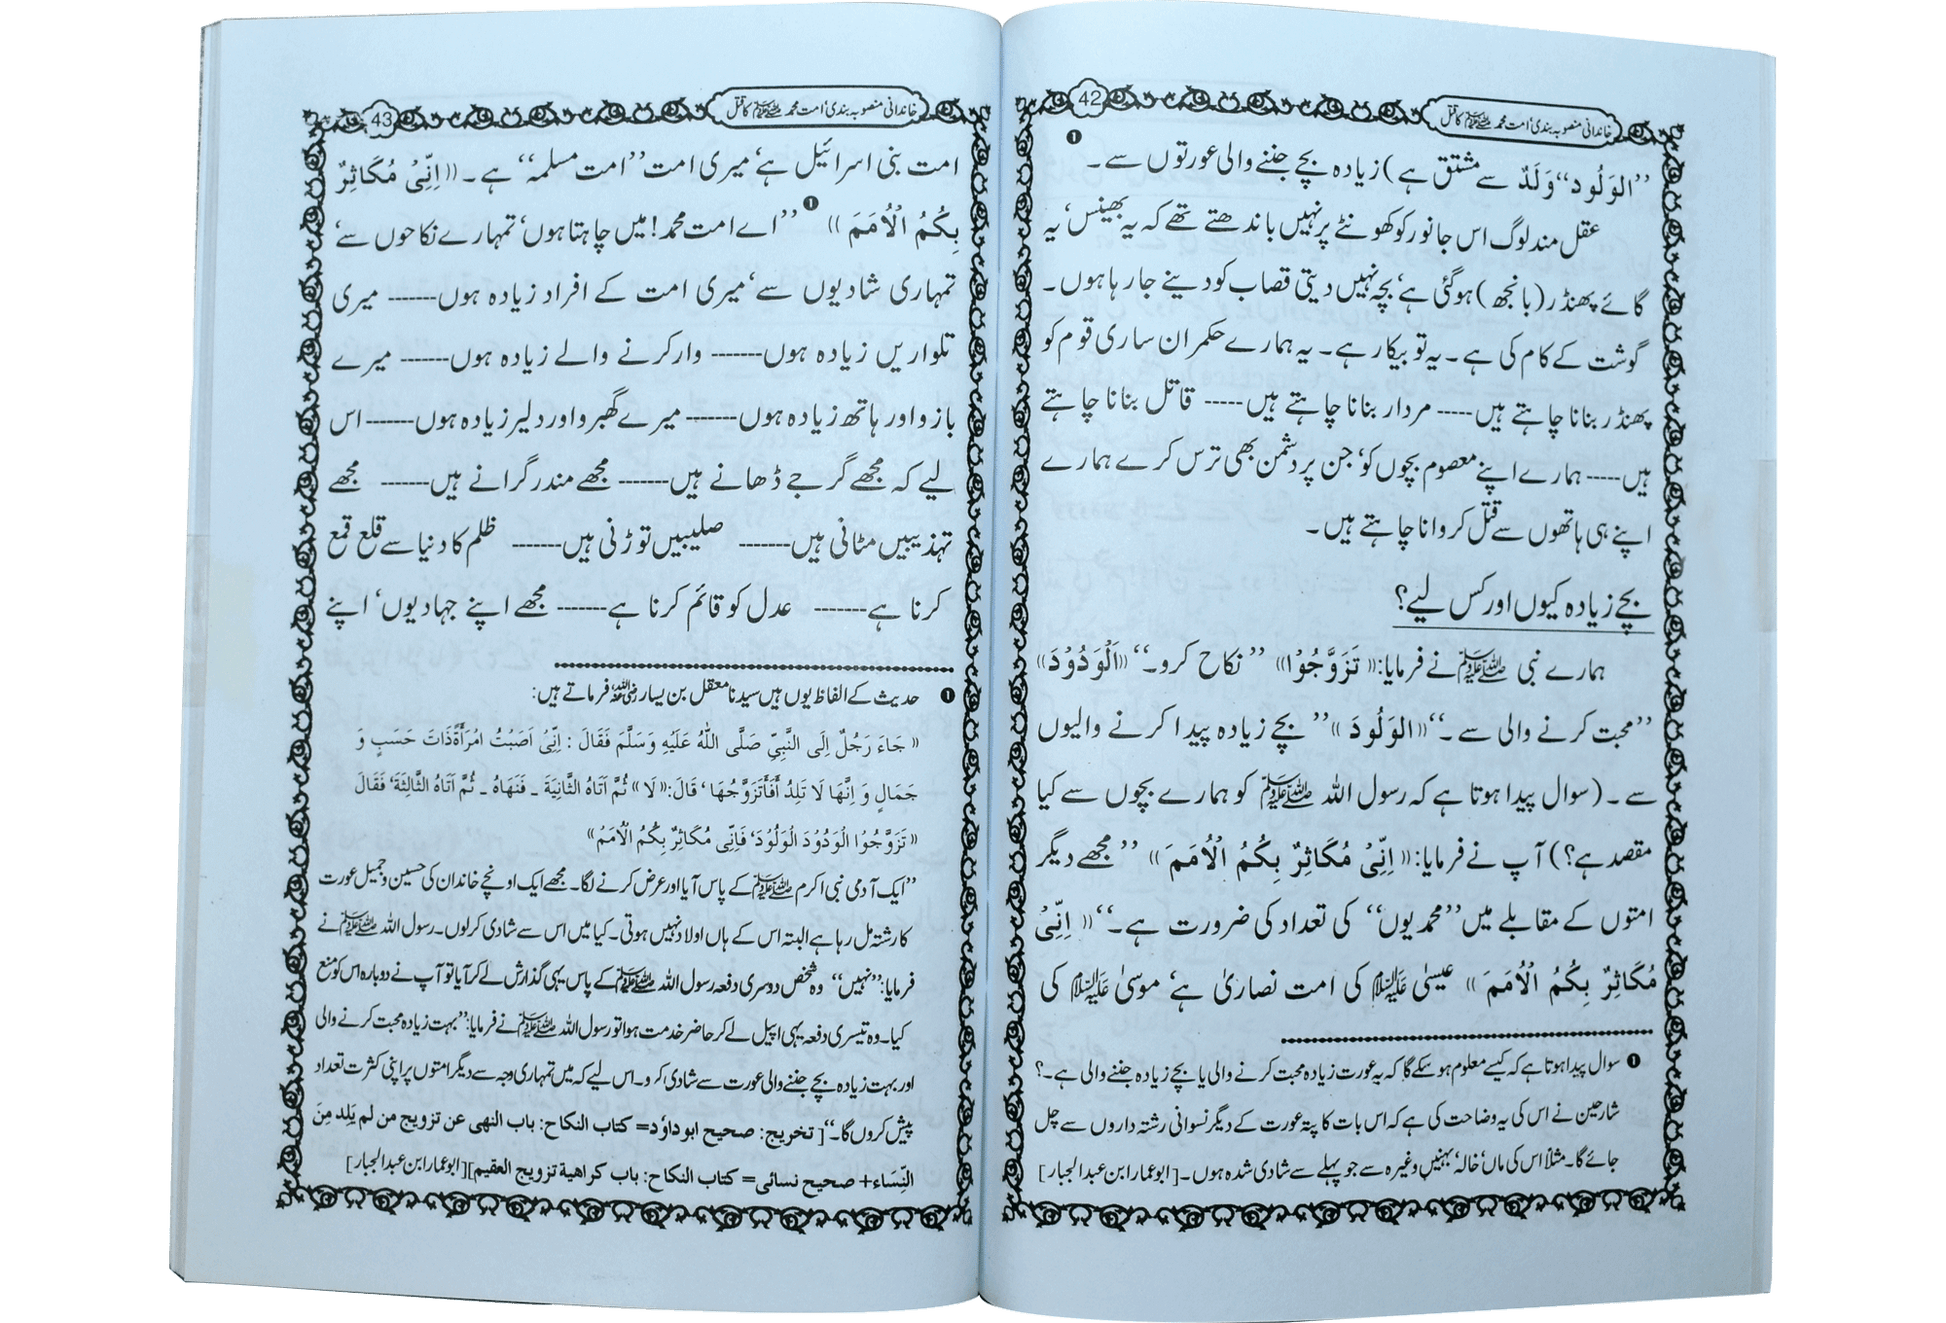 42
خاندانی منصوبہ بندی، امت محمد ﷺ کا قتل
’’الوَلُود‘‘ وَلَدٌ سے مشتق ہے) زیادہ بچے جننے والی عورتوں سے۔ ❶
عقل مند لوگ اس جانور کو کھونٹے پر نہیں باندھتے تھے کہ یہ بھینس‘ یہ
گائے پھنڈر (بانجھ) ہوگئی ہے‘ بچہ نہیں دیتی قصاب کو دینے جا رہا ہوں۔
گوشت کے کام کی ہے۔ یہ تو بیکار ہے۔ یہ ہمارے حکمران ساری قوم کو
پھنڈر بنانا چاہتے ہیں----- مردار بنانا چاہتے ہیں----- قاتل بنانا چاہتے
ہیں---- ہمارے اپنے معصوم بچوں کو‘ جن پر دشمن بھی ترس کرے ہمارے
اپنے ہی ہاتھوں سے قتل کروانا چاہتے ہیں۔
بچے زیادہ کیوں اور کس لیے؟
ہمارے نبی ﷺ نے فرمایا: «تَزَوَّجُوْا» ’’نکاح کرو۔‘‘ «اَلْوَدُوْدَ»
’’محبت کرنے والی سے۔‘‘ «الوَلُودَ» ’’بچے زیادہ پیدا کرنے والیوں
سے۔ (سوال پیدا ہوتا ہے کہ رسول اللہ ﷺ کو ہمارے بچوں سے کیا
مقصد ہے؟) آپ نے فرمایا: «اِنِّیْ مُکَاثِرٌ بِکُمُ الْاُمَمَ» ’’مجھے دیگر
امتوں کے مقابلے میں ’’محمدیوں‘‘ کی تعداد کی ضرورت ہے۔‘‘ «اِنِّیْ
مُکَاثِرٌ بِکُمُ الْاُمَمَ» عیسیٰ علیہ السلام کی امت نصاریٰ ہے‘ موسیٰ علیہ السلام کی
❶ سوال پیدا ہوتا ہے کہ کیسے معلوم ہو سکے گا کہ یہ عورت زیادہ محبت کرنے والی یا بچے زیادہ جننے والی ہے۔؟
شارحین نے اس کی یہ وضاحت کی ہے کہ اس بات کا پتہ عورت کے دیگر نسوانی رشتہ داروں سے چل
جائے گا۔ مثلاً اس کی ماں‘ خالہ‘ بہنیں وغیرہ سے جو پہلے سے شادی شدہ ہوں۔ [ابوعمار ابن عبدالجبار]
43
خاندانی منصوبہ بندی، امت محمد ﷺ کا قتل
امت بنی اسرائیل ہے‘ میری امت ’’امت مسلمہ‘‘ ہے۔ «اِنِّیْ مُکَاثِرٌ
بِکُمُ الْاُمَمَ» ❶ ’’اے امت محمد! میں چاہتا ہوں‘ تمہارے نکاحوں سے‘
تمہاری شادیوں سے‘ میری امت کے افراد زیادہ ہوں------ میری
تلواریں زیادہ ہوں------ وار کرنے والے زیادہ ہوں------ میرے
بازو اور ہاتھ زیادہ ہوں------ میرے گھبرو اور دلیر زیادہ ہوں------ اس
لیے کہ مجھے گرجے ڈھانے ہیں------ مجھے مندر گرانے ہیں------ مجھے
تہذیبیں مٹانی ہیں------ صلیبیں توڑنی ہیں------ ظلم کا دنیا سے قلع قمع
کرنا ہے------ عدل کو قائم کرنا ہے------ مجھے اپنے جہادیوں‘ اپنے
❶ حدیث کے الفاظ یوں ہیں سیدنا معقل بن یسار رضی اللہ عنہ فرماتے ہیں:
«جَاءَ رَجُلٌ اِلَی النَّبِیِّ صَلَّی اللّٰہُ عَلَیْہِ وَسَلَّمَ فَقَالَ : اِنِّیْ اَصَبْتُ امْرَأَۃً ذَاتَ حَسَبٍ وَ
جَمَالٍ وَ اِنَّهَا لَا تَلِدُ أَفَأَتَزَوَّجُهَا‘ قَالَ: «لَا» ثُمَّ اَتَاہُ الثَّانِیَةَ ۔ فَنَهَاہُ ۔ ثُمَّ اَتَاہُ الثَّالِثَةَ‘ فَقَالَ
«تَزَوَّجُوْا الْوَدُوْدَ الْوَلُوْدَ‘ فَاِنِّی مُکَاثِرٌ بِکُمُ الْاُمَمَ»
’’ایک آدمی نبی اکرم ﷺ کے پاس آیا اور عرض کرنے لگا۔ مجھے ایک اونچے خاندان کی حسین و جمیل عورت
کا رشتہ مل رہا ہے البتہ اس کے ہاں اولاد نہیں ہوتی۔ کیا میں اس سے شادی کر لوں۔ رسول اللہ ﷺ نے
فرمایا: ’’نہیں‘‘ وہ شخص دوسری دفعہ رسول اللہ ﷺ کے پاس یہی گذارش لے کر آیا تو آپ نے دوبارہ اس کو منع
کیا۔ وہ تیسری دفعہ یہی اپیل لے کر حاضر خدمت ہوا تو رسول اللہ ﷺ نے فرمایا: ’’بہت زیادہ محبت کرنے والی
اور بہت زیادہ بچے جننے والی عورت سے شادی کرو۔ اس لیے کہ میں تمہاری وجہ سے دیگر امتوں پر اپنی کثرت تعداد
پیش کروں گا۔‘‘ [تخریج: صحیح ابوداوٗد= کتاب النکاح: باب النھی عن تزویج من لم یَلِد مِنَ
النِّسَاء+ صحیح نسائی= کتاب النکاح: باب کراھیۃ تزویج العقیم] [ابوعمار ابن عبدالجبار]